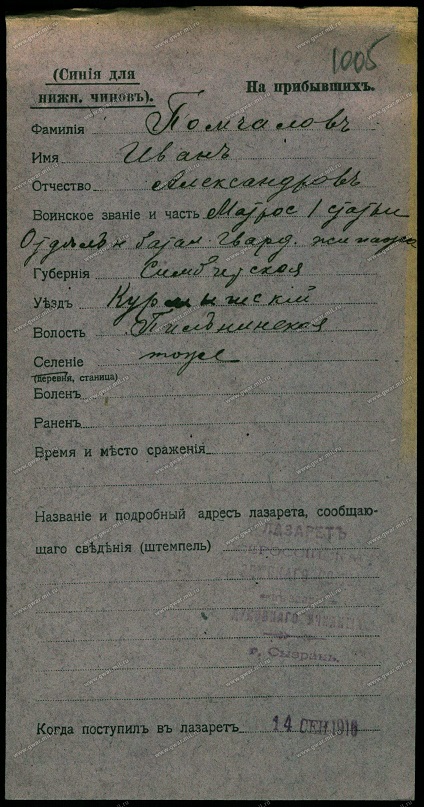 1005
(Синія для
нижн. чиновъ).
На прибывшихъ.
Фамилія Помчаловъ
Имя Иванъ
Отчество Александровъ
Воинское званіе и часть Матрос 1 статьи
Отдѣльн батал. Гвард. экипажа
Губернія Симбирская
Уѣздъ Курмышскій
Волость Пильнинская
Селеніе тоже
(деревня, станица)
Боленъ
Раненъ
Время и мѣсто сраженія
Названіе и подробный адресъ лазарета, сообщаю-
щаго свѣдѣнія (штемпель)
ЛАЗАРЕТЪ
г. Сызрань.
Когда поступилъ въ лазаретъ 14 СЕН 1916